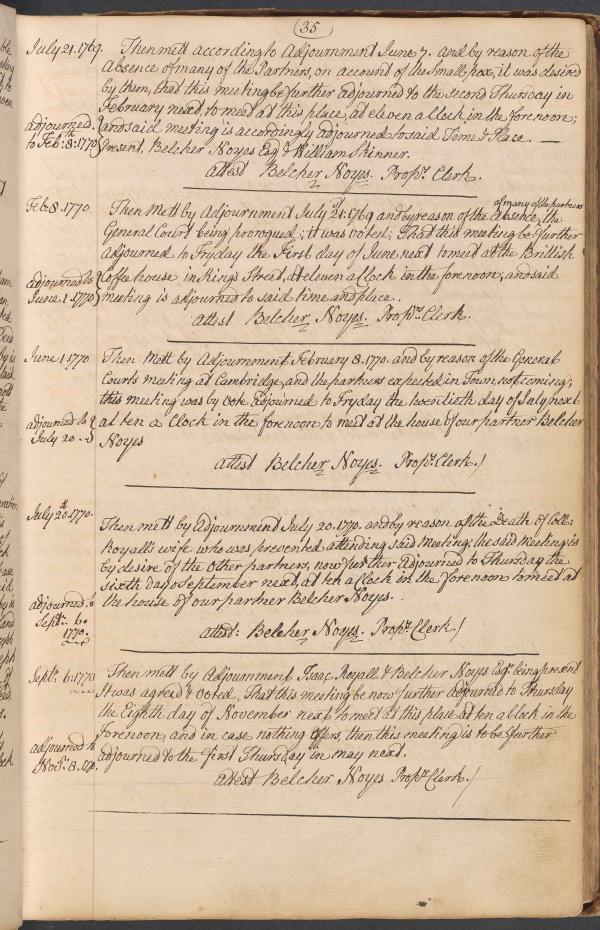 35
July 21. 1769. Then mett according to Adjournment June 7. and by reason of the
Absence of many of the Partners, on account of the Small-pox, it was desired
by them, that this meeting be further adjourned to the second Thursday in
February next, to meet at this place, at eleven a Clock in the forenoon;
adjourned to Feb: 8th: 1770 and said meeting is accordingly adjourned to said Time & Place. —
Present, Belcher Noyes Esq & William Skinner.
attest Belcher Noyes. Propts. Clerk.
Feb: 8. 1770 Then Mett by Adjournment July 21st: 1769 and by reason of the Absence of many of the partners, the
General Court being prorogued; it was Voted, That this meeting be further
Adjourned to Fryday the First day of June next to meet at the Brittish
adjourned to June 1. 1770 Coffee house in Kings Street, at eleven a Clock in the forenoon; and said
meeting is adjourned to said time and place.
attest Belcher Noyes. Proprs. Clerk.
June 1 1770 Then Mett by Adjournment February 8. 1770. and by reason of the General
Courts meeting at Cambridge, and the partners expected in Town, not coming;
this meeting was by vote adjourned to Fryday the twentieth day of July next
adjourned to July 20. at ten a Clock in the forenoon to meet at the house of our partner Belcher
Noyes
attest Belcher Noyes. Propr. Clerk./
July 20th. 1770. Then mett by Adjournment July 20. 1770. and by reason of the Death of Colle:
Royall's wife who was prevented attending said Meeting; the said Meeting is
by desire of the other partners, now further Adjourned to Thursday the
sixth day of September next, at ten a Clock in the forenoon to meet at
adjourned to Septr: 6. 1770. the house of our partner Belcher Noyes.
attest: Belcher Noyes. Propr. Clerk./
Septr. 6: 1770 Then mett by Adjournment Isaac Royall & Belcher Noyes Esqrs. being present
It was agreed & voted, That this meeting be now further adjourned to Thursday
the Eighth day of November next to meet at this place at ten a Clock in the
forenoon, and in case nothing offers, then this meeting is to be further
adjourned to Novr. 8. 1770. adjourned to the first Thursday in may next.
attest Belcher Noyes Propr. Clerk./